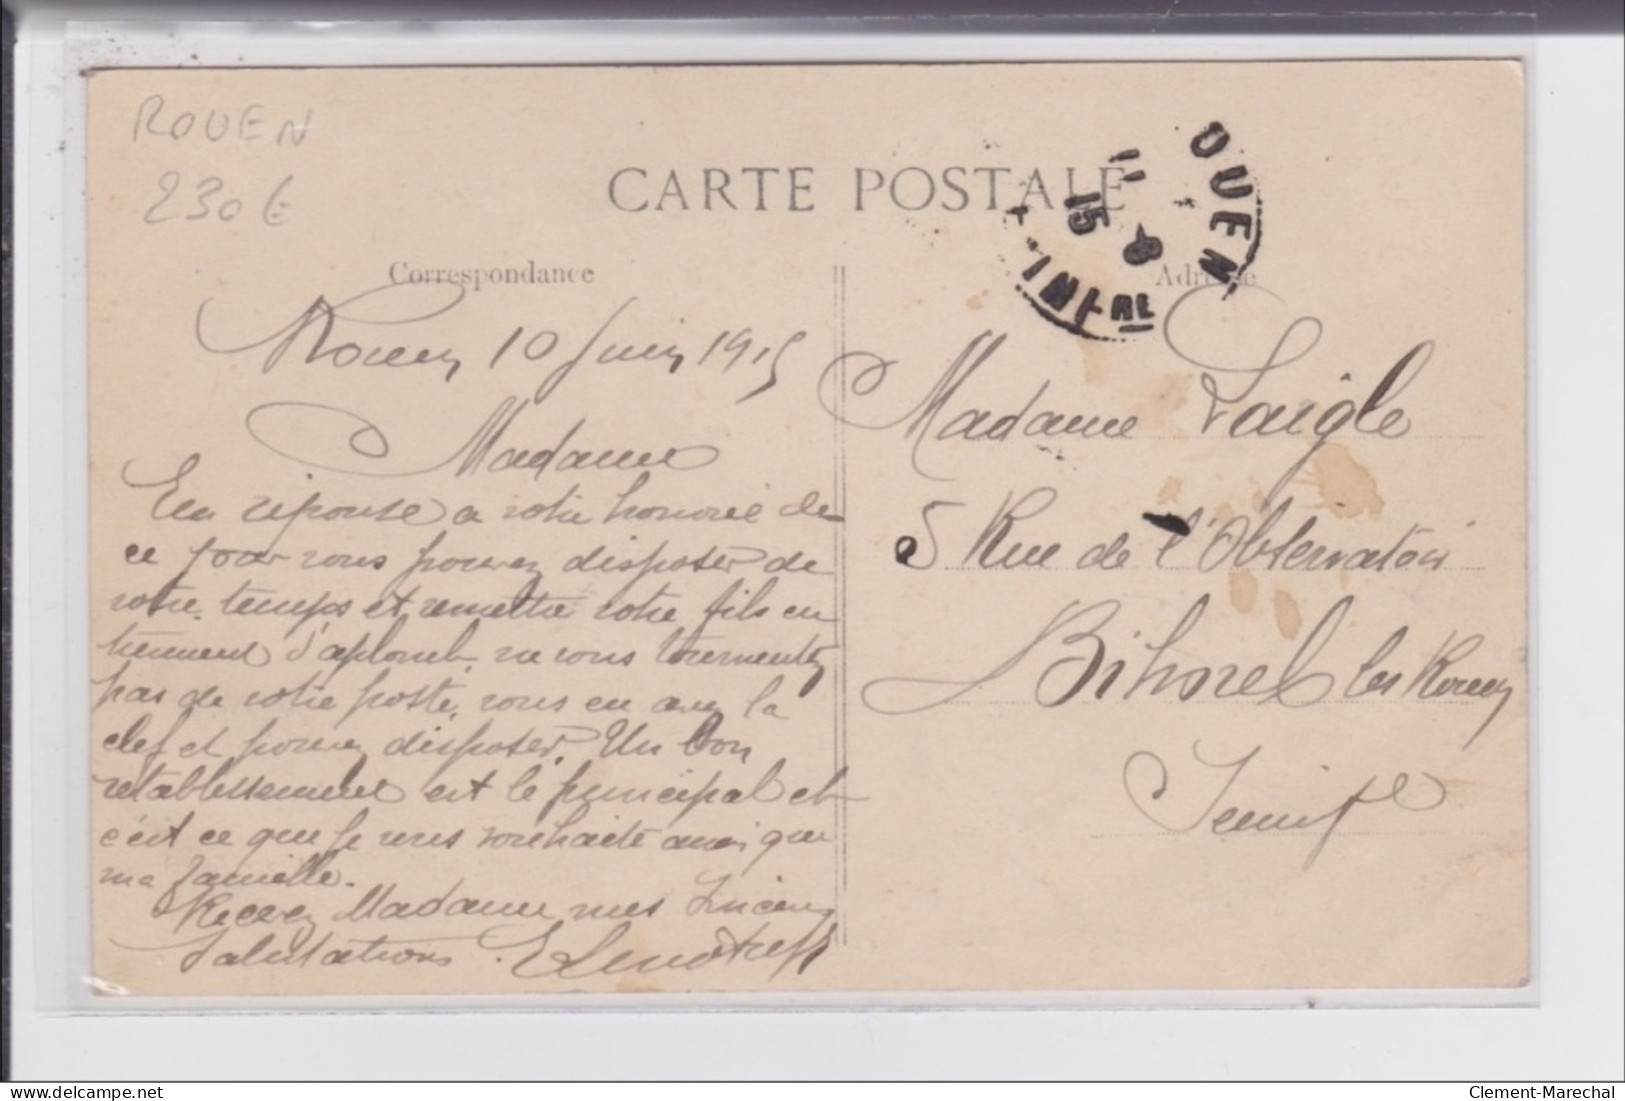 ROUEN
230 €
CARTE POSTALE
Correspondance
Adresse
OUEN
11 - 6
15
INFRE
Rouen 10 Juin 1915
Madame
En réponse a votre honorée de
ce jour vous pouvez disposer de
votre temps et remettre votre fils en
d'aplomb, ne vous tourmentez
pas de votre poste, vous en avez la
clef et pouvez disposer. Un bon
rétablissement est le principal et
c'est ce que je vous souhaite ainsi que
ma famille.
Recevez Madame mes sincères
Salutations.
Madame Laigle
5 Rue de l'Observatoire
Bihorel les Rouen
Seine Infre
delcampe.net
Clement-Marechal